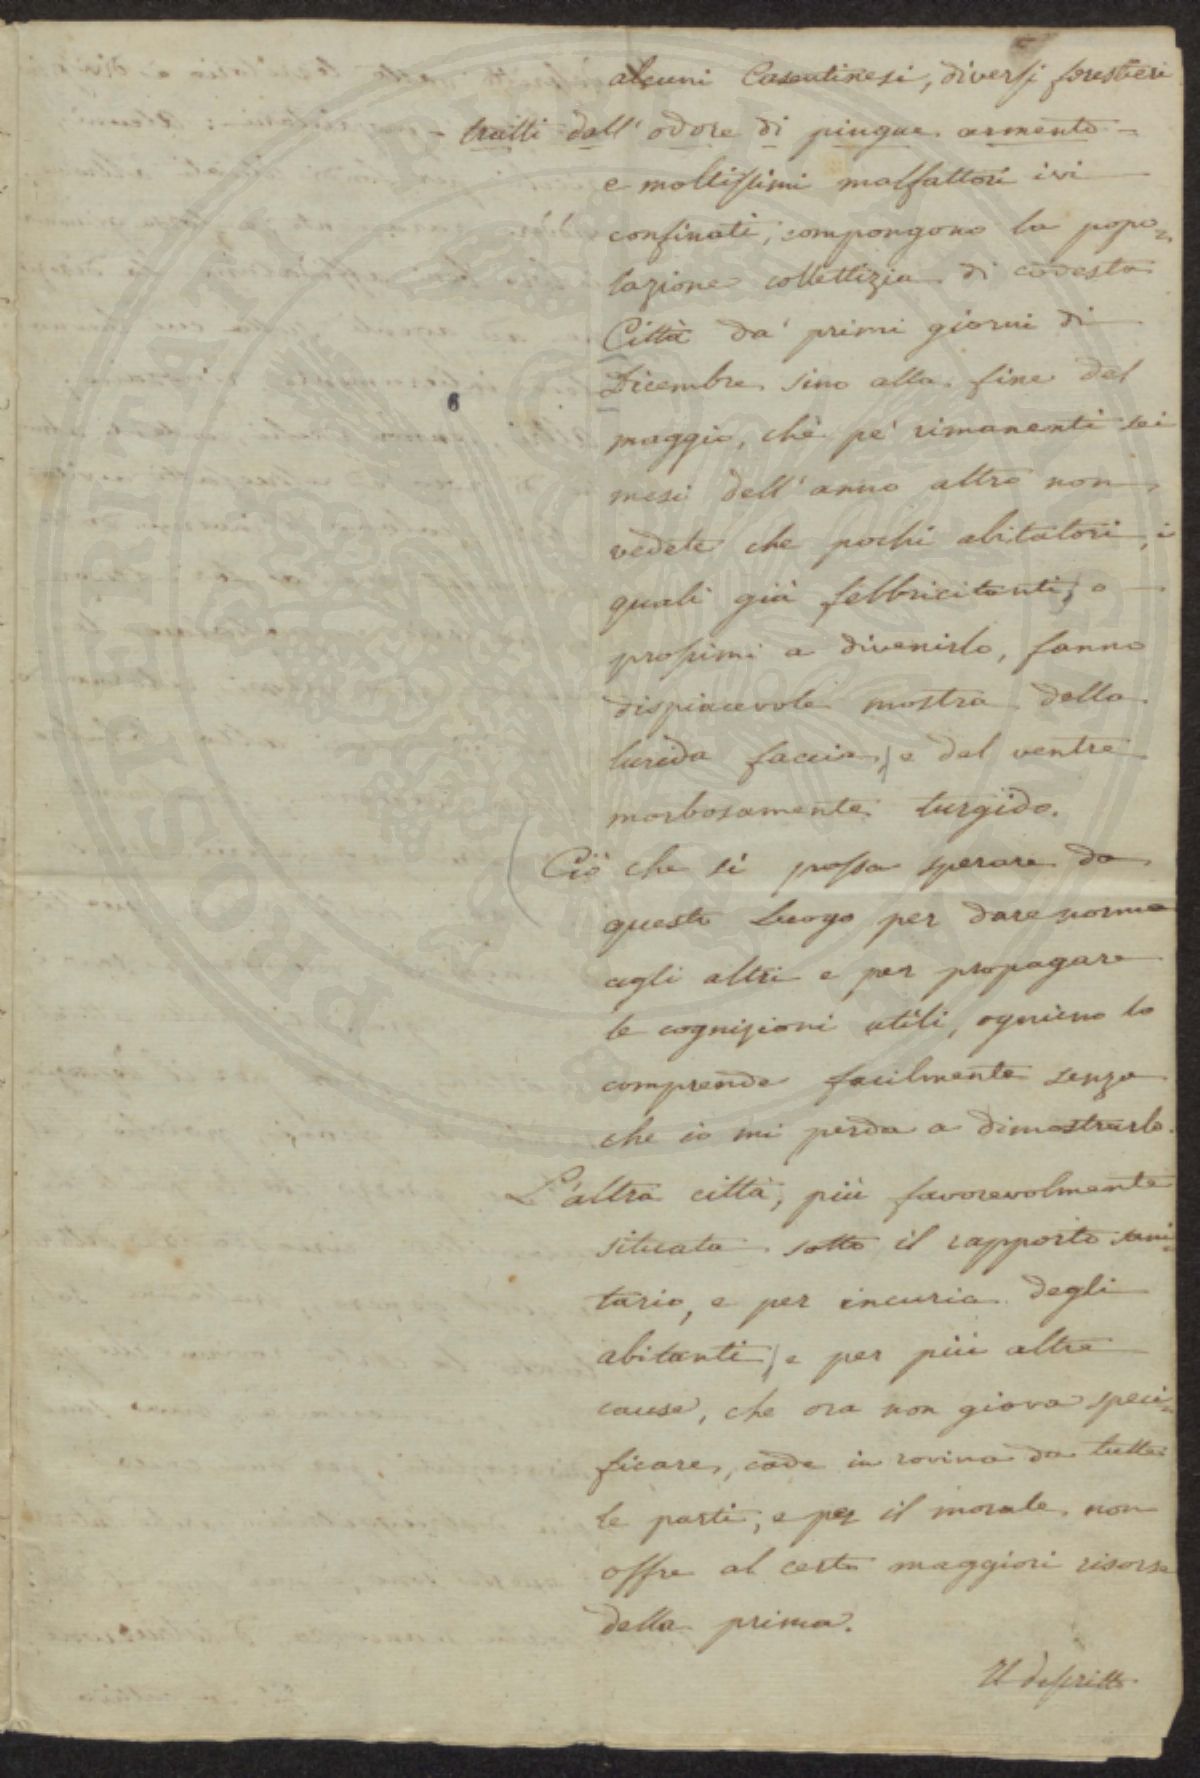 alcuni Casentinesi, diversi forestieri
– tratti dall' odore di pingue armento –
e moltissimi malfattori ivi
confinati, compongono la popo-
lazione collettizia di codesta
Città da' primi giorni di
Dicembre sino alla fine del
maggio, chè pe' rimanenti sei
mesi dell' anno altro non
vedete che pochi abitatori, i
quali già febbricitanti, o
prossimi a divenirlo, fanno
dispiacevole mostra della
lurida faccia, e del ventre
morbosamente turgido.
Ciò che si possa sperare da
questo Luogo per dare norma
agli altri e per propagare
le cognizioni utili, ognuno lo
comprende facilmente senza
che io mi perda a dimostrarlo.
L'altra città, più favorevolmente
situata sotto il rapporto sani-
tario, e per incuria degli
abitanti, e per più altre
cause, che ora non giova speci-
ficare, cade in rovina da tutte
le parti, e per il morale non
offre al certo maggiori risorse
della prima.
Il descritto
6
PROSPERITATI PUBLICAE